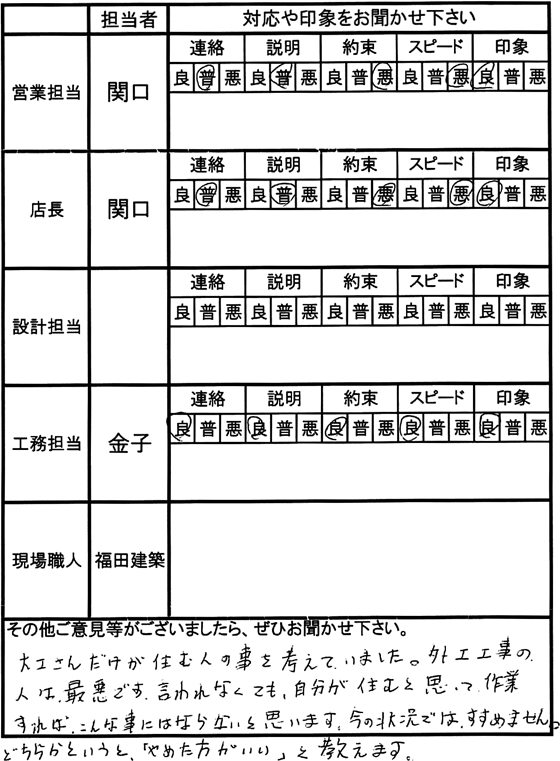 担当者 対応や印象をお聞かせ下さい
連絡 説明 約束 スピード 印象
営業担当 関口 良 普 悪 良 普 悪 良 普 悪 良 普 悪 良 普 悪
連絡 説明 約束 スピード 印象
店長 関口 良 普 悪 良 普 悪 良 普 悪 良 普 悪 良 普 悪
連絡 説明 約束 スピード 印象
設計担当 良 普 悪 良 普 悪 良 普 悪 良 普 悪 良 普 悪
連絡 説明 約束 スピード 印象
工務担当 金子 良 普 悪 良 普 悪 良 普 悪 良 普 悪 良 普 悪
現場職人 福田建築
その他ご意見等がございましたら、ぜひお聞かせ下さい。
大工さんだけが住む人の事を考えていました。外工工事の
人は、最悪です。言われなくても、自分が住むと思って、作業
すれば、こんな事にはならないと思います。今の状況では、すすめません。
どちらかというと、「やめた方がいい」と教えます。